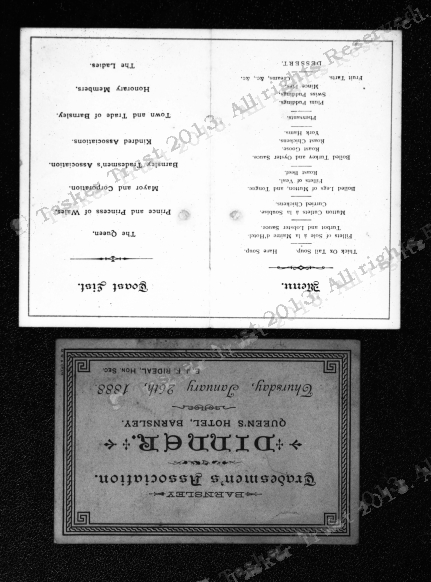 BARNSLEY
Tradesmen's Association.
DINNER.
QUEEN'S HOTEL, BARNSLEY.
Thursday, January 26th, 1888
E. J. F. RIDEAL, Hon. Sec.
Menu.
Thick Ox Tail Soup Hare Soup
Fillets of Sole à la Maitre d'Hotel
Turbot and Lobster Sauce
Mutton Cutlets à la Soubise
Curried Chickens
Boiled Legs of Mutton, and Tongue.
Fillets of Veal.
Roast Beef.
Boiled Turkey and Oyster Sauce
Roast Goose
Roast Chickens
York Hams.
Pheasants
Plum Puddings
Swiss Puddings
Mince Pies
Fruit Tarts. Creams, &c., &c.
DESSERT.
Toast List.
The Queen.
Prince and Princess of Wales.
Mayor and Corporation
Barnsley Tradesmen's Association.
Kindred Associations
Town and Trade of Barnsley.
Honorary Members.
The Ladies.
© Tasker Trust 2013. All rights Reserved.